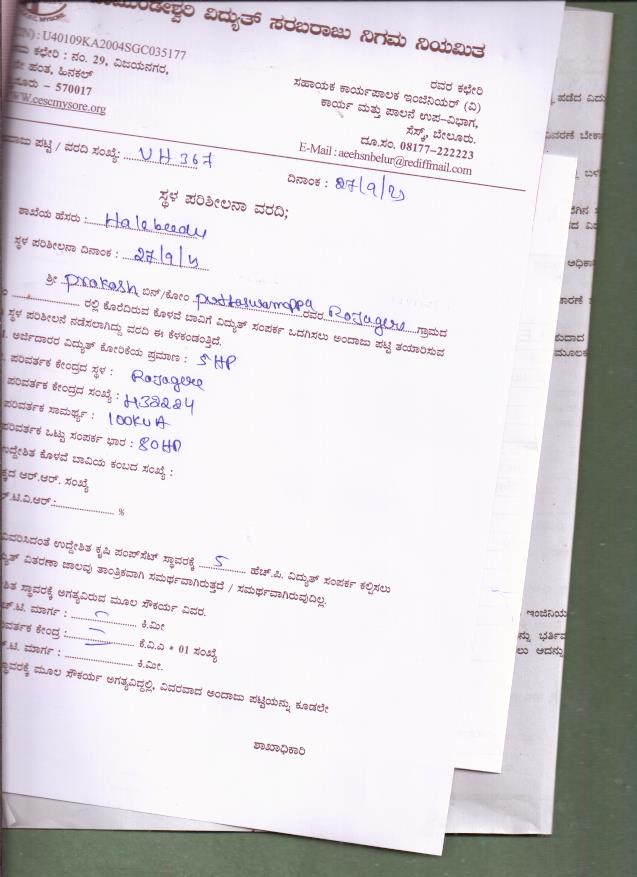 ವಿದ್ಯುತ್ ಸರಬರಾಜು ನಿಗಮ ನಿಯಮಿತ
: U40109KA2004SGC035177
ಕಛೇರಿ : ನಂ. 29, ವಿಜಯನಗರ,
ಹಂತ, ಹಿನಕಲ್
– 570017
www.cescmysore.org
ರವರ ಕಛೇರಿ
ಸಹಾಯಕ ಕಾರ್ಯಪಾಲಕ ಇಂಜಿನಿಯರ್ (ವಿ)
ಕಾರ್ಯ ಮತ್ತು ಪಾಲನೆ ಉಪ-ವಿಭಾಗ,
ಸೆಸ್ಕ್, ಬೇಲೂರು.
ದೂ.ಸಂ. 08177-222223
E-Mail : aeehsnbelur@rediffmail.com
ಪಟ್ಟಿ / ವರದಿ ಸಂಖ್ಯೆ: VH 367
ದಿನಾಂಕ : 27/9/21
ಸ್ಥಳ ಪರಿಶೀಲನಾ ವರದಿ;
ಶಾಖೆಯ ಹೆಸರು : Halebeedu
ಸ್ಥಳ ಪರಿಶೀಲನಾ ದಿನಾಂಕ : 27/9/21
ಶ್ರೀ Prakash ಬಿನ್/ಕೋಂ Puttaswamappa ರವರ Rajagere ಗ್ರಾಮದ
ರಲ್ಲಿ ಕೊರೆದಿರುವ ಕೊಳವೆ ಬಾವಿಗೆ ವಿದ್ಯುತ್ ಸಂಪರ್ಕ ಒದಗಿಸಲು ಅಂದಾಜು ಪಟ್ಟಿ ತಯಾರಿಸುವ
ಸ್ಥಳ ಪರಿಶೀಲನೆ ನಡೆಸಲಾಗಿದ್ದು ವರದಿ ಈ ಕೆಳಕಂಡಂತ್ತಿದೆ.
ಅರ್ಜಿದಾರರ ವಿದ್ಯುತ್ ಕೋರಿಕೆಯ ಪ್ರಮಾಣ : 5HP
ಪರಿವರ್ತಕ ಕೇಂದ್ರದ ಸ್ಥಳ : Rajagere
ಪರಿವರ್ತಕ ಕೇಂದ್ರದ ಸಂಖ್ಯೆ : H38224
ಪರಿವರ್ತಕ ಸಾಮರ್ಥ್ಯ : 100KVA
ಪರಿವರ್ತಕ ಒಟ್ಟು ಸಂಪರ್ಕ ಭಾರ : 80HP
ಉದ್ದೇಶಿತ ಕೊಳವೆ ಬಾವಿಯ ಕಂಬದ ಸಂಖ್ಯೆ :
ಆರ್.ಆರ್. ಸಂಖ್ಯೆ
.ಟಿ.ವಿ.ಆರ್.: %
ವಿವರಿಸಿದಂತೆ ಉದ್ದೇಶಿತ ಕೃಷಿ ಪಂಪ್‌ಸೆಟ್ ಸ್ಥಾವರಕ್ಕೆ 5 ಹೆಚ್.ಪಿ. ವಿದ್ಯುತ್ ಸಂಪರ್ಕ ಕಲ್ಪಿಸಲು
ವಿತರಣಾ ಜಾಲವು ತಾಂತ್ರಿಕವಾಗಿ ಸಮರ್ಥವಾಗಿರುತ್ತದೆ / ಸಮರ್ಥವಾಗಿರುವುದಿಲ್ಲ.
ಸ್ಥಾವರಕ್ಕೆ ಅಗತ್ಯವಿರುವ ಮೂಲ ಸೌಕರ್ಯ ವಿವರ.
.ಟಿ. ಮಾರ್ಗ : ಕಿ.ಮೀ
ಕೇಂದ್ರ : ಕೆ.ವಿ.ಎ * 01 ಸಂಖ್ಯೆ
.ಟಿ. ಮಾರ್ಗ : ಕಿ.ಮೀ.
ಮೂಲ ಸೌಕರ್ಯ ಅಗತ್ಯವಿದ್ದಲ್ಲಿ, ವಿವರವಾದ ಅಂದಾಜು ಪಟ್ಟಿಯನ್ನು ಕೂಡಲೇ
ಶಾಖಾಧಿಕಾರಿ